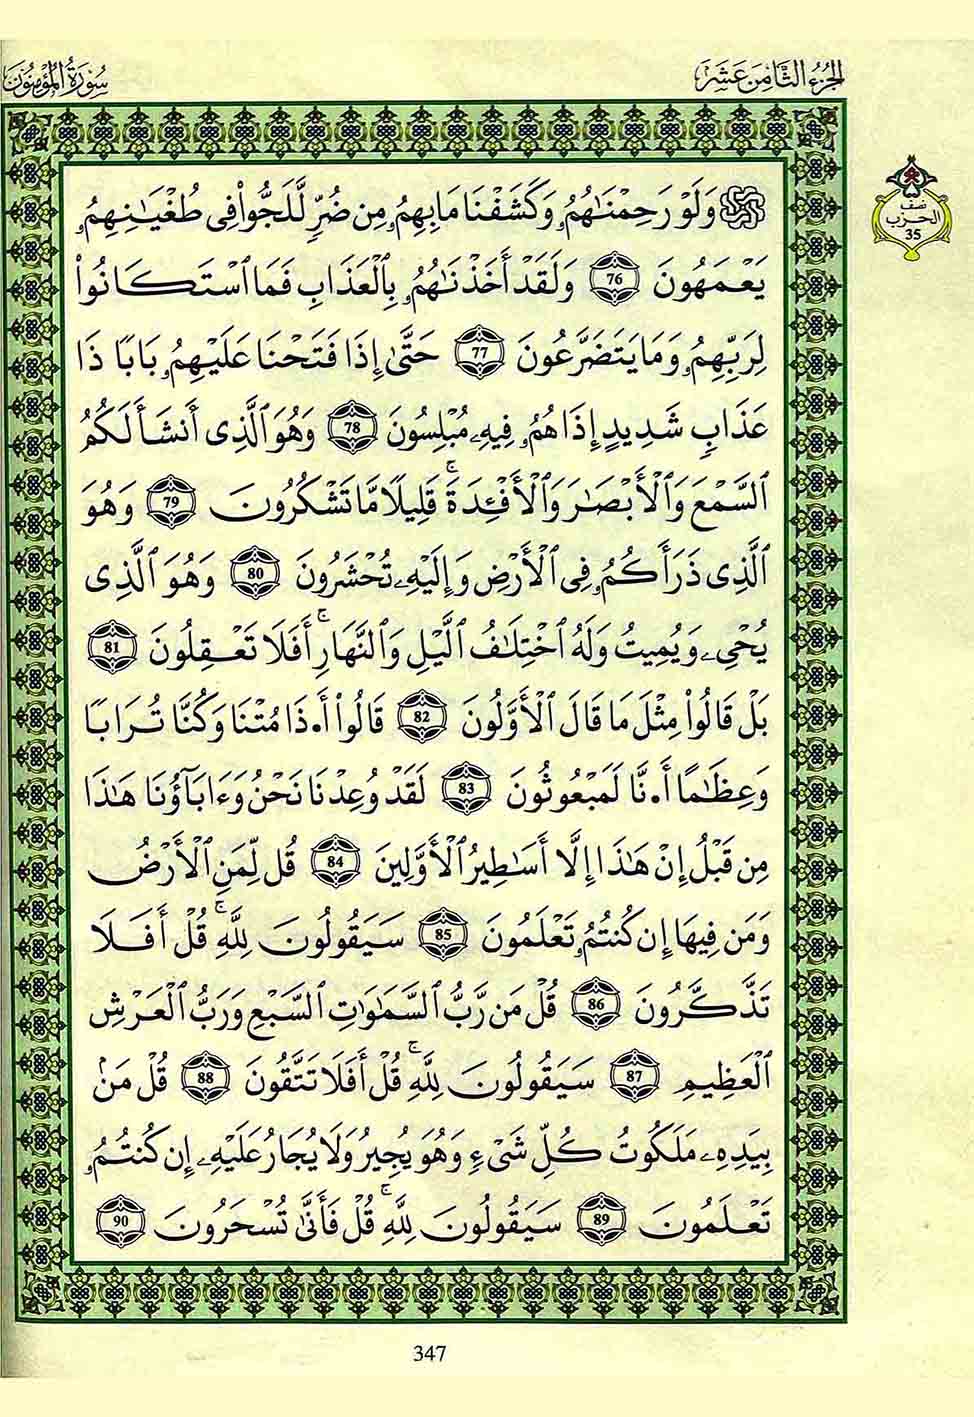 الجزء الثامن عشر
سورة المؤمنون
نصف
الحزب
35
۞ وَلَوْ رَحِمْنَٰهُمُۥ وَكَشَفْنَا مَا بِهِمُۥ مِن ضُرٍّ لَّلَجُّواْ فِى طُغْيَٰنِهِمُۥ
يَعْمَهُونَ 76 وَلَقَدْ أَخَذْنَٰهُمُۥ بِالْعَذَابِ فَمَا اَسْتَكَانُواْ
لِرَبِّهِمُۥ وَمَا يَتَضَرَّعُونَ 77 حَتَّىٰ إِذَا فَتَحْنَا عَلَيْهِمُۥ بَابًا ذَا
عَذَابٍ شَدِيدٍ إِذَا هُمُۥ فِيهِۦ مُبْلِسُونَ 78 وَهُوَ اَلَّذِى أَنشَأَ لَكُمُ
اُلسَّمْعَ وَالْأَبْصَٰرَ وَالْأَفْـِٔدَةَ ۚ قَلِيلًا مَّا تَشْكُرُونَ 79 وَهُوَ
اَلَّذِى ذَرَأَكُمُۥ فِى اِلْأَرْضِ وَإِلَيْهِۦ تُحْشَرُونَ 80 وَهُوَ اَلَّذِى
يُحْيِۦ وَيُمِيتُ وَلَهُ اُخْتِلَٰفُ اُلَّيْلِ وَالنَّهَارِ ۚ أَفَلَا تَعْقِلُونَ 81
بَلْ قَالُواْ مِثْلَ مَا قَالَ اَلْأَوَّلُونَ 82 قَالُواْ أَ۟ذَا مُتْنَا وَكُنَّا تُرَابًا
وَعِظَٰمًا أَ۟نَّا لَمَبْعُوثُونَ 83 لَقَدْ وُعِدْنَا نَحْنُ وَءَابَآؤُنَا هَٰذَا
مِن قَبْلُ إِنْ هَٰذَا إِلَّا أَسَٰطِيرُ اُلْأَوَّلِينَ 84 قُل لِّمَنِ اِلْأَرْضُ
وَمَن فِيهَا إِن كُنتُمُۥ تَعْلَمُونَ 85 سَيَقُولُونَ لِلَّهِ ۚ قُلْ أَفَلَا
تَذَّكَّرُونَ 86 قُلْ مَن رَّبُّ اُلسَّمَٰوَٰتِ اِلسَّبْعِ وَرَبُّ اُلْعَرْشِ
اِلْعَظِيمِ 87 سَيَقُولُونَ لِلَّهِ ۚ قُلْ أَفَلَا تَتَّقُونَ 88 قُلْ مَنۢ
بِيَدِهِۦ مَلَكُوتُ كُلِّ شَىْءٍ وَهُوَ يُجِيرُ وَلَا يُجَارُ عَلَيْهِۦ إِن كُنتُمُۥ
تَعْلَمُونَ 89 سَيَقُولُونَ لِلَّهِ ۚ قُلْ فَأَنَّىٰ تُسْحَرُونَ 90
347